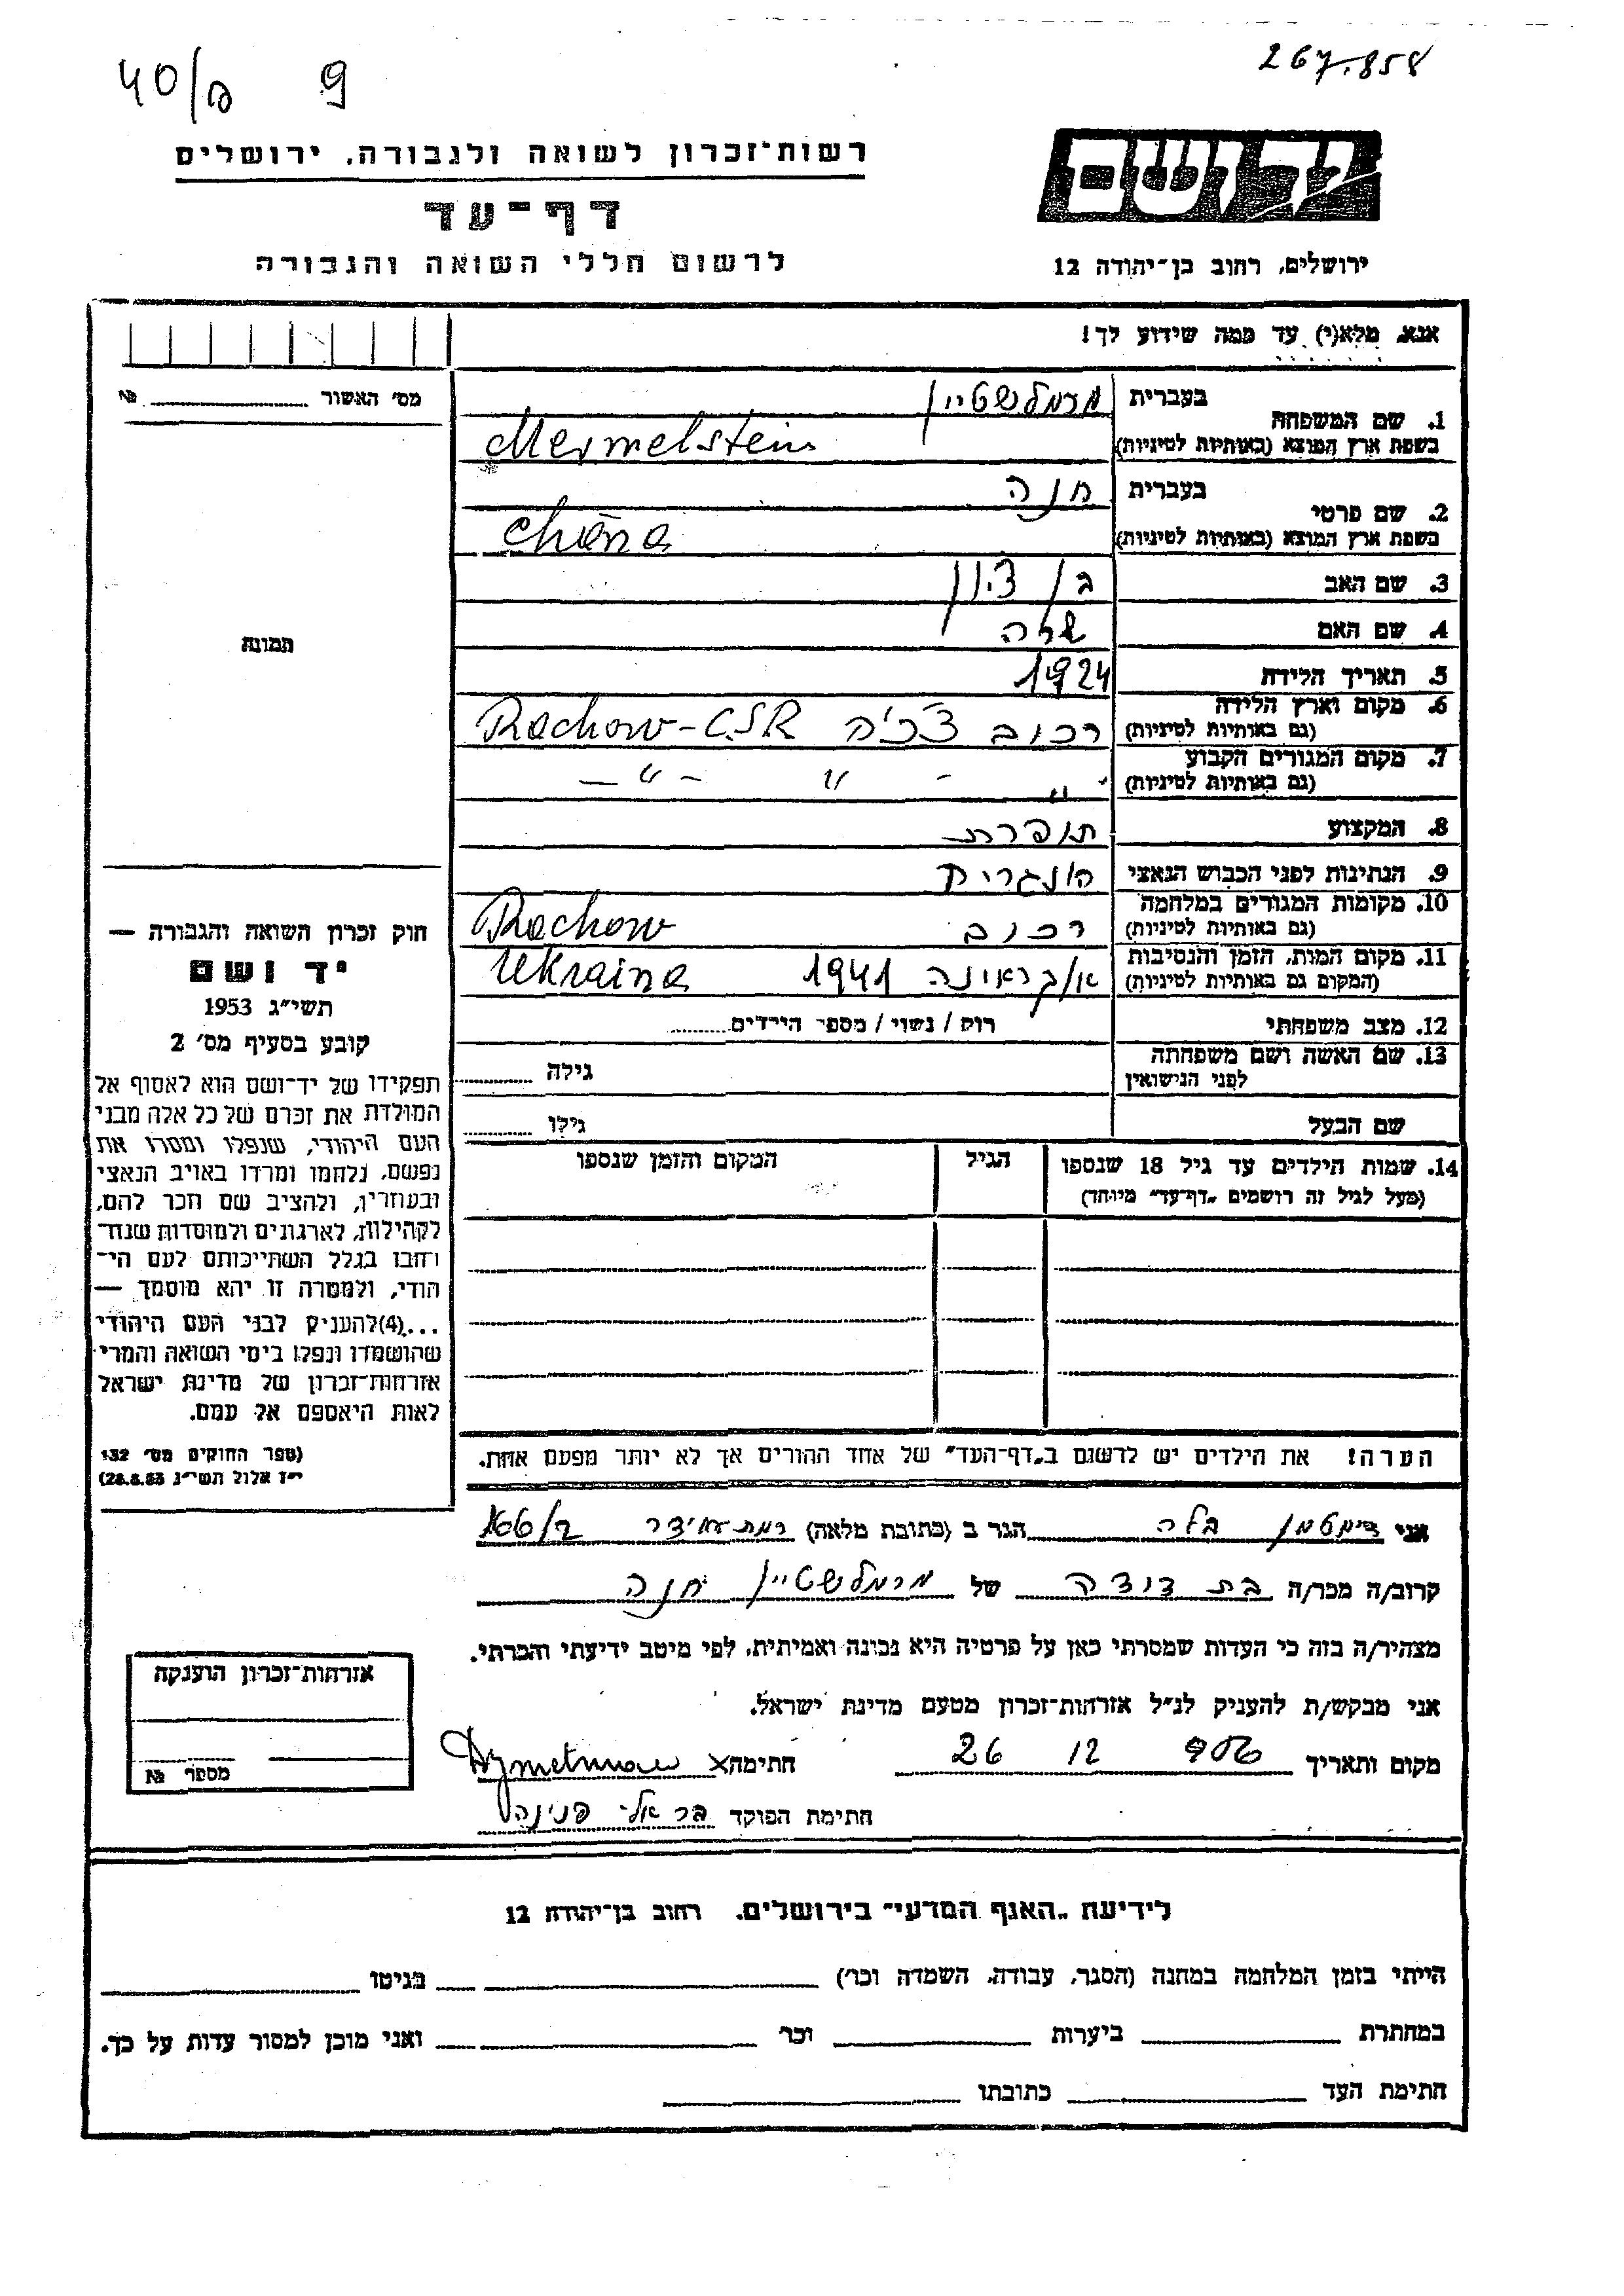 267.858
40/מ 9
יד ושם
רשות־זכרון לשואה ולגבורה, ירושלים
דף־עד
לרשום חללי השואה והגבורה
ירושלים, רחוב בן־יהודה 12
אנא, מלא(י) עד כמה שידוע לך!
מס׳ האשור № 
1. שם המשפחה בעברית מרמלשטיין
בשפת ארץ המוצא (באותיות לטיניות) Mermelstein
2. שם פרטי בעברית חנה
בשפת ארץ המוצא (באותיות לטיניות) Chana
3. שם האב בן ציון
4. שם האם שרה
5. תאריך הלידה 1924
6. מקום וארץ הלידה (גם באותיות לטיניות) רכוב צ׳כיה Rachow-CSR
7. מקום המגורים הקבוע (גם באותיות לטיניות) " - " - " -
8. המקצוע תופרת
9. הנתינות לפני הכבוש הנאצי הונגרית
10. מקומות המגורים במלחמה (גם באותיות לטיניות) רכוב Rachow
11. מקום המות, הזמן והנסיבות (המקום גם באותיות לטיניות) אוקראינה 1941 Ukraina
12. מצב משפחתי רווק / נשוי / מספר הילדים
13. שם האשה ושם משפחתה לפני הנישואין גילה
שם הבעל גילו
14. שמות הילדים עד גיל 18 שנספו הגיל המקום והזמן שנספו
(מעל לגיל זה רושמים „דף־עד״ מיוחד)
הערה! את הילדים יש לרשום ב„דף־העד״ של אחד ההורים אך לא יותר מפעם אחת.
תמונה
חוק זכרון השואה והגבורה —
יד ושם
תשי״ג 1953
קובע בסעיף מס׳ 2
תפקידו של יד־ושם הוא לאסוף אל
המולדת את זכרם של כל אלה מבני
העם היהודי, שנפלו ומסרו את
נפשם, נלחמו ומרדו באויב הנאצי
ובעוזריו, ולהציב שם וזכר להם,
לקהילות, לארגונים ולמוסדות שנח־
רבו בגלל השתייכותם לעם הי־
הודי, ולמטרה זו יהא מוסמך —
...(4) להעניק לבני העם היהודי
שהושמדו ונפלו בימי השואה והמרי
אזרחות־זכרון של מדינת ישראל
לאות היאספם אל עמם.
(ספר החוקים מס׳ 132
י״ז אלול תשי״ג 28.8.53)
אני דימטמן בלה הגר ב (כתובת מלאה) רמת אליעזר 166/2
קרוב/ה מכר/ה בת דודה של מרמלשטיין חנה
מצהיר/ה בזה כי העדות שמסרתי כאן על פרטיה היא נכונה ואמיתית, לפי מיטב ידיעתי והכרתי.
אני מבקש/ת להעניק לנ״ל אזרחות־זכרון מטעם מדינת ישראל.
מקום ותאריך 956 12 26 חתימה x Dymetman
חתימת הפוקד בר אלי פנינה
אזרחות־זכרון הוענקה
מספר №
לידיעת „האגף המדעי״ בירושלים, רחוב בן־יהודה 12
הייתי בזמן המלחמה במחנה (הסגר, עבודה, השמדה וכו׳) בגיטו
במחתרת ביערות וכו׳ ואני מוכן למסור עדות על כך.
חתימת העד כתובתו